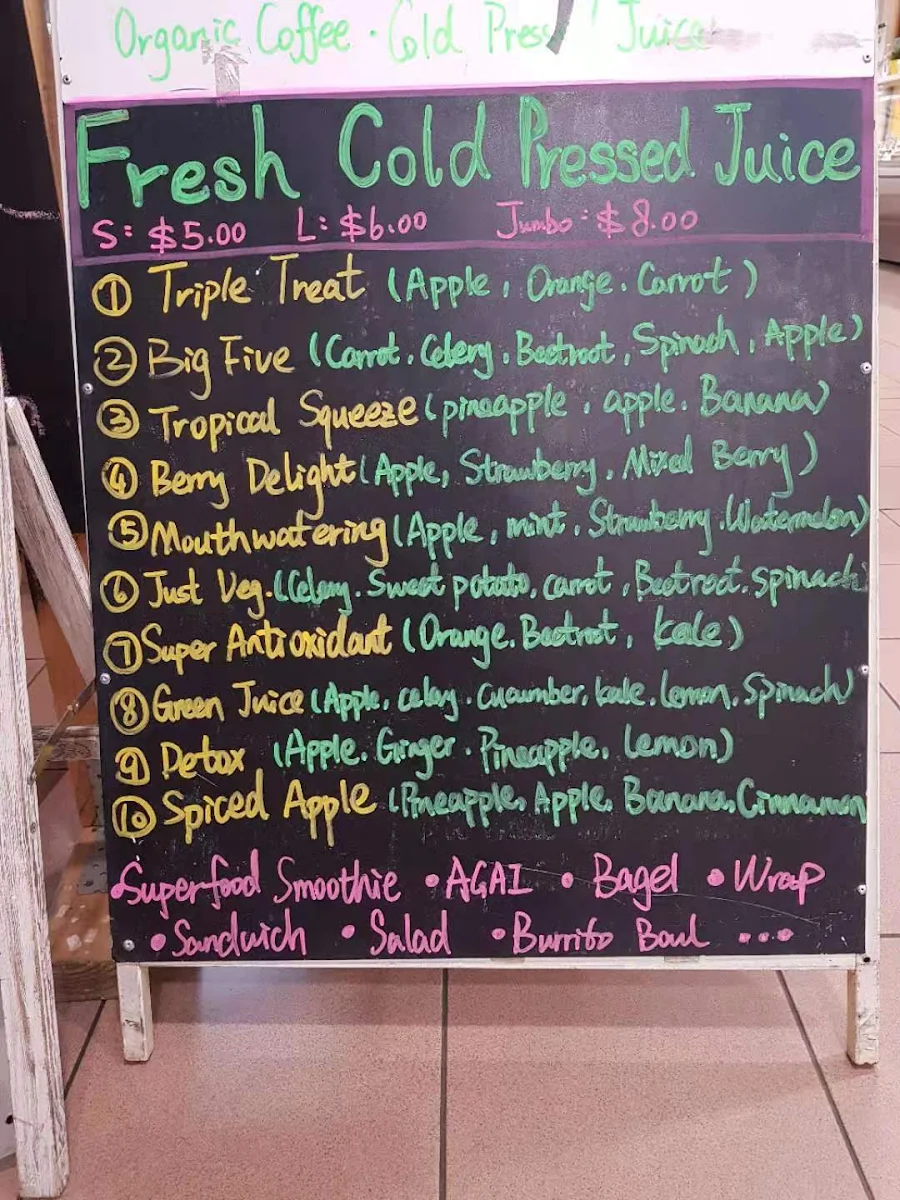 Organic Coffee · Cold Press Juice
Fresh Cold Pressed Juice
S: $5.00 L: $6.00 Jumbo: $8.00
① Triple Treat (Apple, Orange. Carrot)
② Big Five (Carrot. Celery. Beetroot, Spinach, Apple)
③ Tropical Squeeze (pineapple, apple. Banana)
④ Berry Delight (Apple, Strawberry, Mixed Berry)
⑤ Mouthwatering (Apple, mint, Strawberry. Watermelon)
⑥ Just Veg. (Celery. Sweet potato, carrot, Beetroot. spinach
⑦ Super Antioxidant (Orange. Beetroot, kale)
⑧ Green Juice (Apple, celery. Cucumber, kale. lemon, Spinach)
⑨ Detox (Apple. Ginger. Pineapple, Lemon)
⑩ Spiced Apple (Pineapple, Apple, Banana, Cinnamon
• Superfood Smoothie • ACAI • Bagel • Wrap
• Sandwich • Salad • Burrito Bowl ...